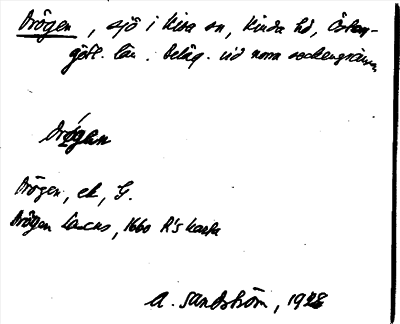 Drögen, sjö i Kisa sn, Kinda hd, Öster-
götl. län. Beläg. vid norra sockengränsen
Drögen
Drögen, ek, G.
Drögen Lacus, 1660 R's karta
A. Sandström, 1928